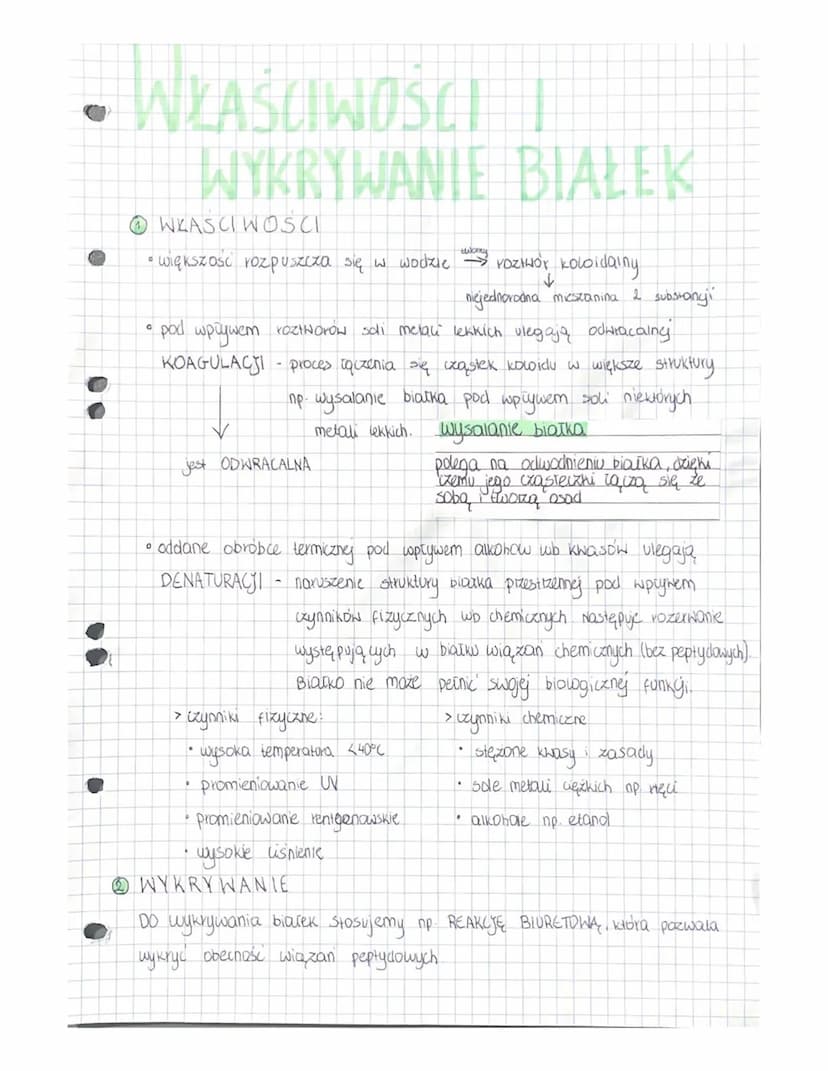 WŁAŚCIWOŚCI I
WYKRYWANIE BIAŁEK
1 WŁAŚCIWOŚCI
• większość rozpuszcza się w wodzie tworzy → roztwór koloidalny
↓
niejednorodna mieszanina 2 substancji
• pod wpływem roztworów soli metali lekkich ulegają odwracalnej
KOAGULACJI - proces łączenia się cząstek koloidu w większe struktury
np. wysalanie białka pod wpływem soli niektórych
metali lekkich.
↓
jest ODWRACALNA
wysalanie białka
polega na odwodnieniu białka, dzięki
czemu jego cząsteczki łączą się ze
sobą i tworzą osad
• oddane obróbce termicznej pod wpływem alkoholow lub kwasów ulegają
DENATURACJI - naruszenie struktury białka przestrzennej pod wpływem
czynników fizycznych lub chemicznych Następuje rozerwanie
występujących w białku wiązań chemicznych (bez peptydowych).
Białko nie może pełnić swojej biologicznej funkcji.
> czynniki fizyczne:
• wysoka temperatura <40°C
• promieniowanie UV
• promieniowanie rentgenowskie
• wysokie ciśnienie
> czynniki chemiczne
• stężone kwasy i zasady
• sole metali ciężkich np. rtęci
• alkohole np. etanol
2 WYKRYWANIE
DO wykrywania białek stosujemy np. REAKCJĘ BIURETOWĄ, która pozwala
wykryć obecność wiązań peptydowych